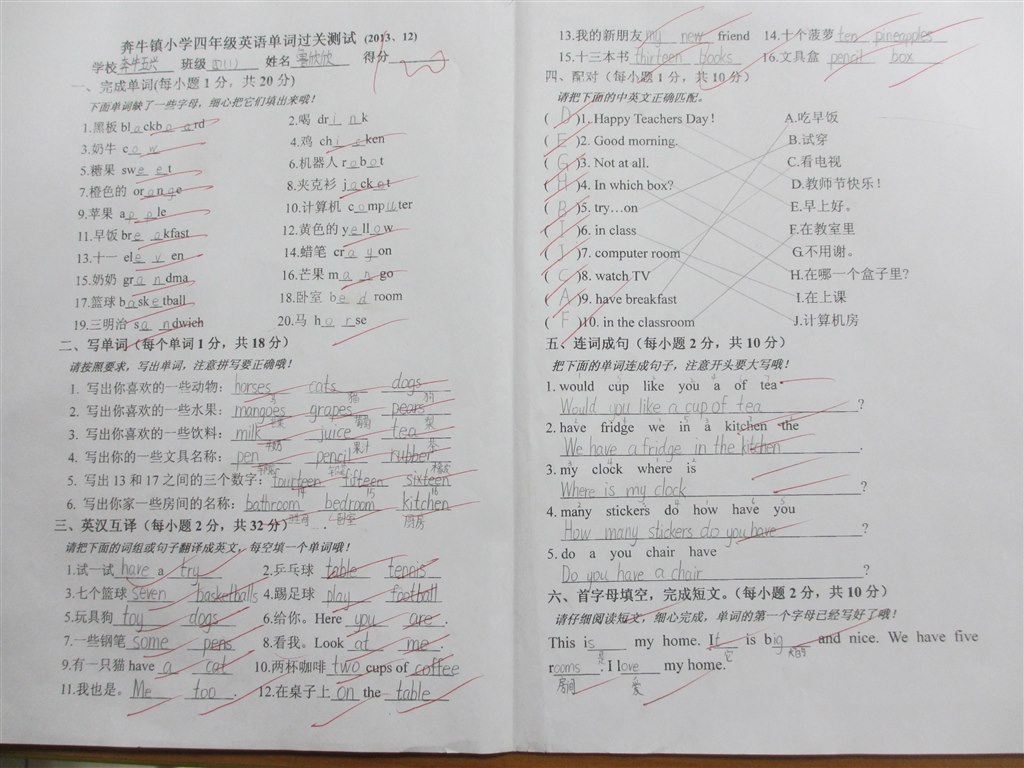 奔牛镇小学四年级英语单词过关测试 (2013、12)
学校 班级 四(1) 姓名 得分
一、完成单词(每小题 1 分，共 20 分)
下面单词缺了一些字母，细心把它们填出来哦！
1.黑板 blackboard 2.喝 drink
3.奶牛 cow 4.鸡 chicken
5.糖果 sweet 6.机器人 robot
7.橙色的 orange 8.夹克衫 jacket
9.苹果 apple 10.计算机 computer
11.早饭 breakfast 12.黄色的 yellow
13.十一 eleven 14.蜡笔 crayon
15.奶奶 grandma 16.芒果 mango
17.篮球 basketball 18.卧室 bedroom
19.三明治 sandwich 20.马 horse
二、写单词（每个单词 1 分，共 18 分）
请按照要求，写出单词，注意拼写要正确哦！
1. 写出你喜欢的一些动物：horses cats dogs
马 猫 狗
2. 写出你喜欢的一些水果：mangoes grapes pears
芒果 葡萄 梨
3. 写出你喜欢的一些饮料：milk juice tea
牛奶 果汁 茶
4. 写出你的一些文具名称：pen pencil rubber
钢笔 铅笔 橡皮
5. 写出 13 和 17 之间的三个数字：fourteen fifteen sixteen
14 15 16
6. 写出你家一些房间的名称：bathroom bedroom kitchen
卧室 厨房
三、英汉互译（每小题 2 分，共 32 分）
请把下面的词组或句子翻译成英文，每空填一个单词哦！
1.试一试 have a try 2.乒乓球 table tennis
3.七个篮球 seven basketballs 4.踢足球 play football
5.玩具狗 toy dogs 6.给你。Here you are .
7.一些钢笔 some pens 8.看我。Look at me .
9.有一只猫 have a cat 10.两杯咖啡 two cups of coffee
11.我也是。Me too . 12.在桌子上 on the table
13.我的新朋友 my new friend 14.十个菠萝 ten pineapples
15.十三本书 thirteen books 16.文具盒 pencil box
四、配对（每小题 1 分，共 10 分）
请把下面的中英文正确匹配。
( D )1. Happy Teachers Day！ A.吃早饭
( E )2. Good morning. B.试穿
( G )3. Not at all. C.看电视
( H )4. In which box? D.教师节快乐！
( B )5. try…on E.早上好。
( I )6. in class F.在教室里
( J )7. computer room G.不用谢。
( C )8. watch TV H.在哪一个盒子里？
( A )9. have breakfast I.在上课
( F )10. in the classroom J.计算机房
五、连词成句（每小题 2 分，共 10 分）
把下面的单词连成句子，注意开头要大写哦！
1. would cup like you a of tea
Would you like a cup of tea ?
2. have fridge we in a kitchen the
We have a fridge in the kitchen .
3. my clock where is
Where is my clock ?
4. many stickers do how have you
How many stickers do you have ?
5. do a you chair have
Do you have a chair ?
六、首字母填空，完成短文。（每小题 2 分，共 10 分）
请仔细阅读短文，细心完成，单词的第一个字母已经写好了哦！
This is my home. It is big and nice. We have five
是 它 大的
rooms . I love my home.
房间 爱